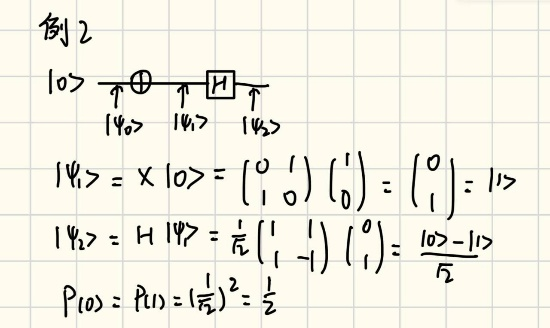 例2
|0> H
|ψ₀> |ψ₁> |ψ₂>
|ψ₁> = X |0> = (0 1 1 0) (1 0) = (0 1) = |1>
|ψ₂> = H |ψ₁> = 1/√2 (1 1 1 -1) (0 1) = |0>-|1> / √2
P(0) = P(1) = (1/√2)² = 1/2